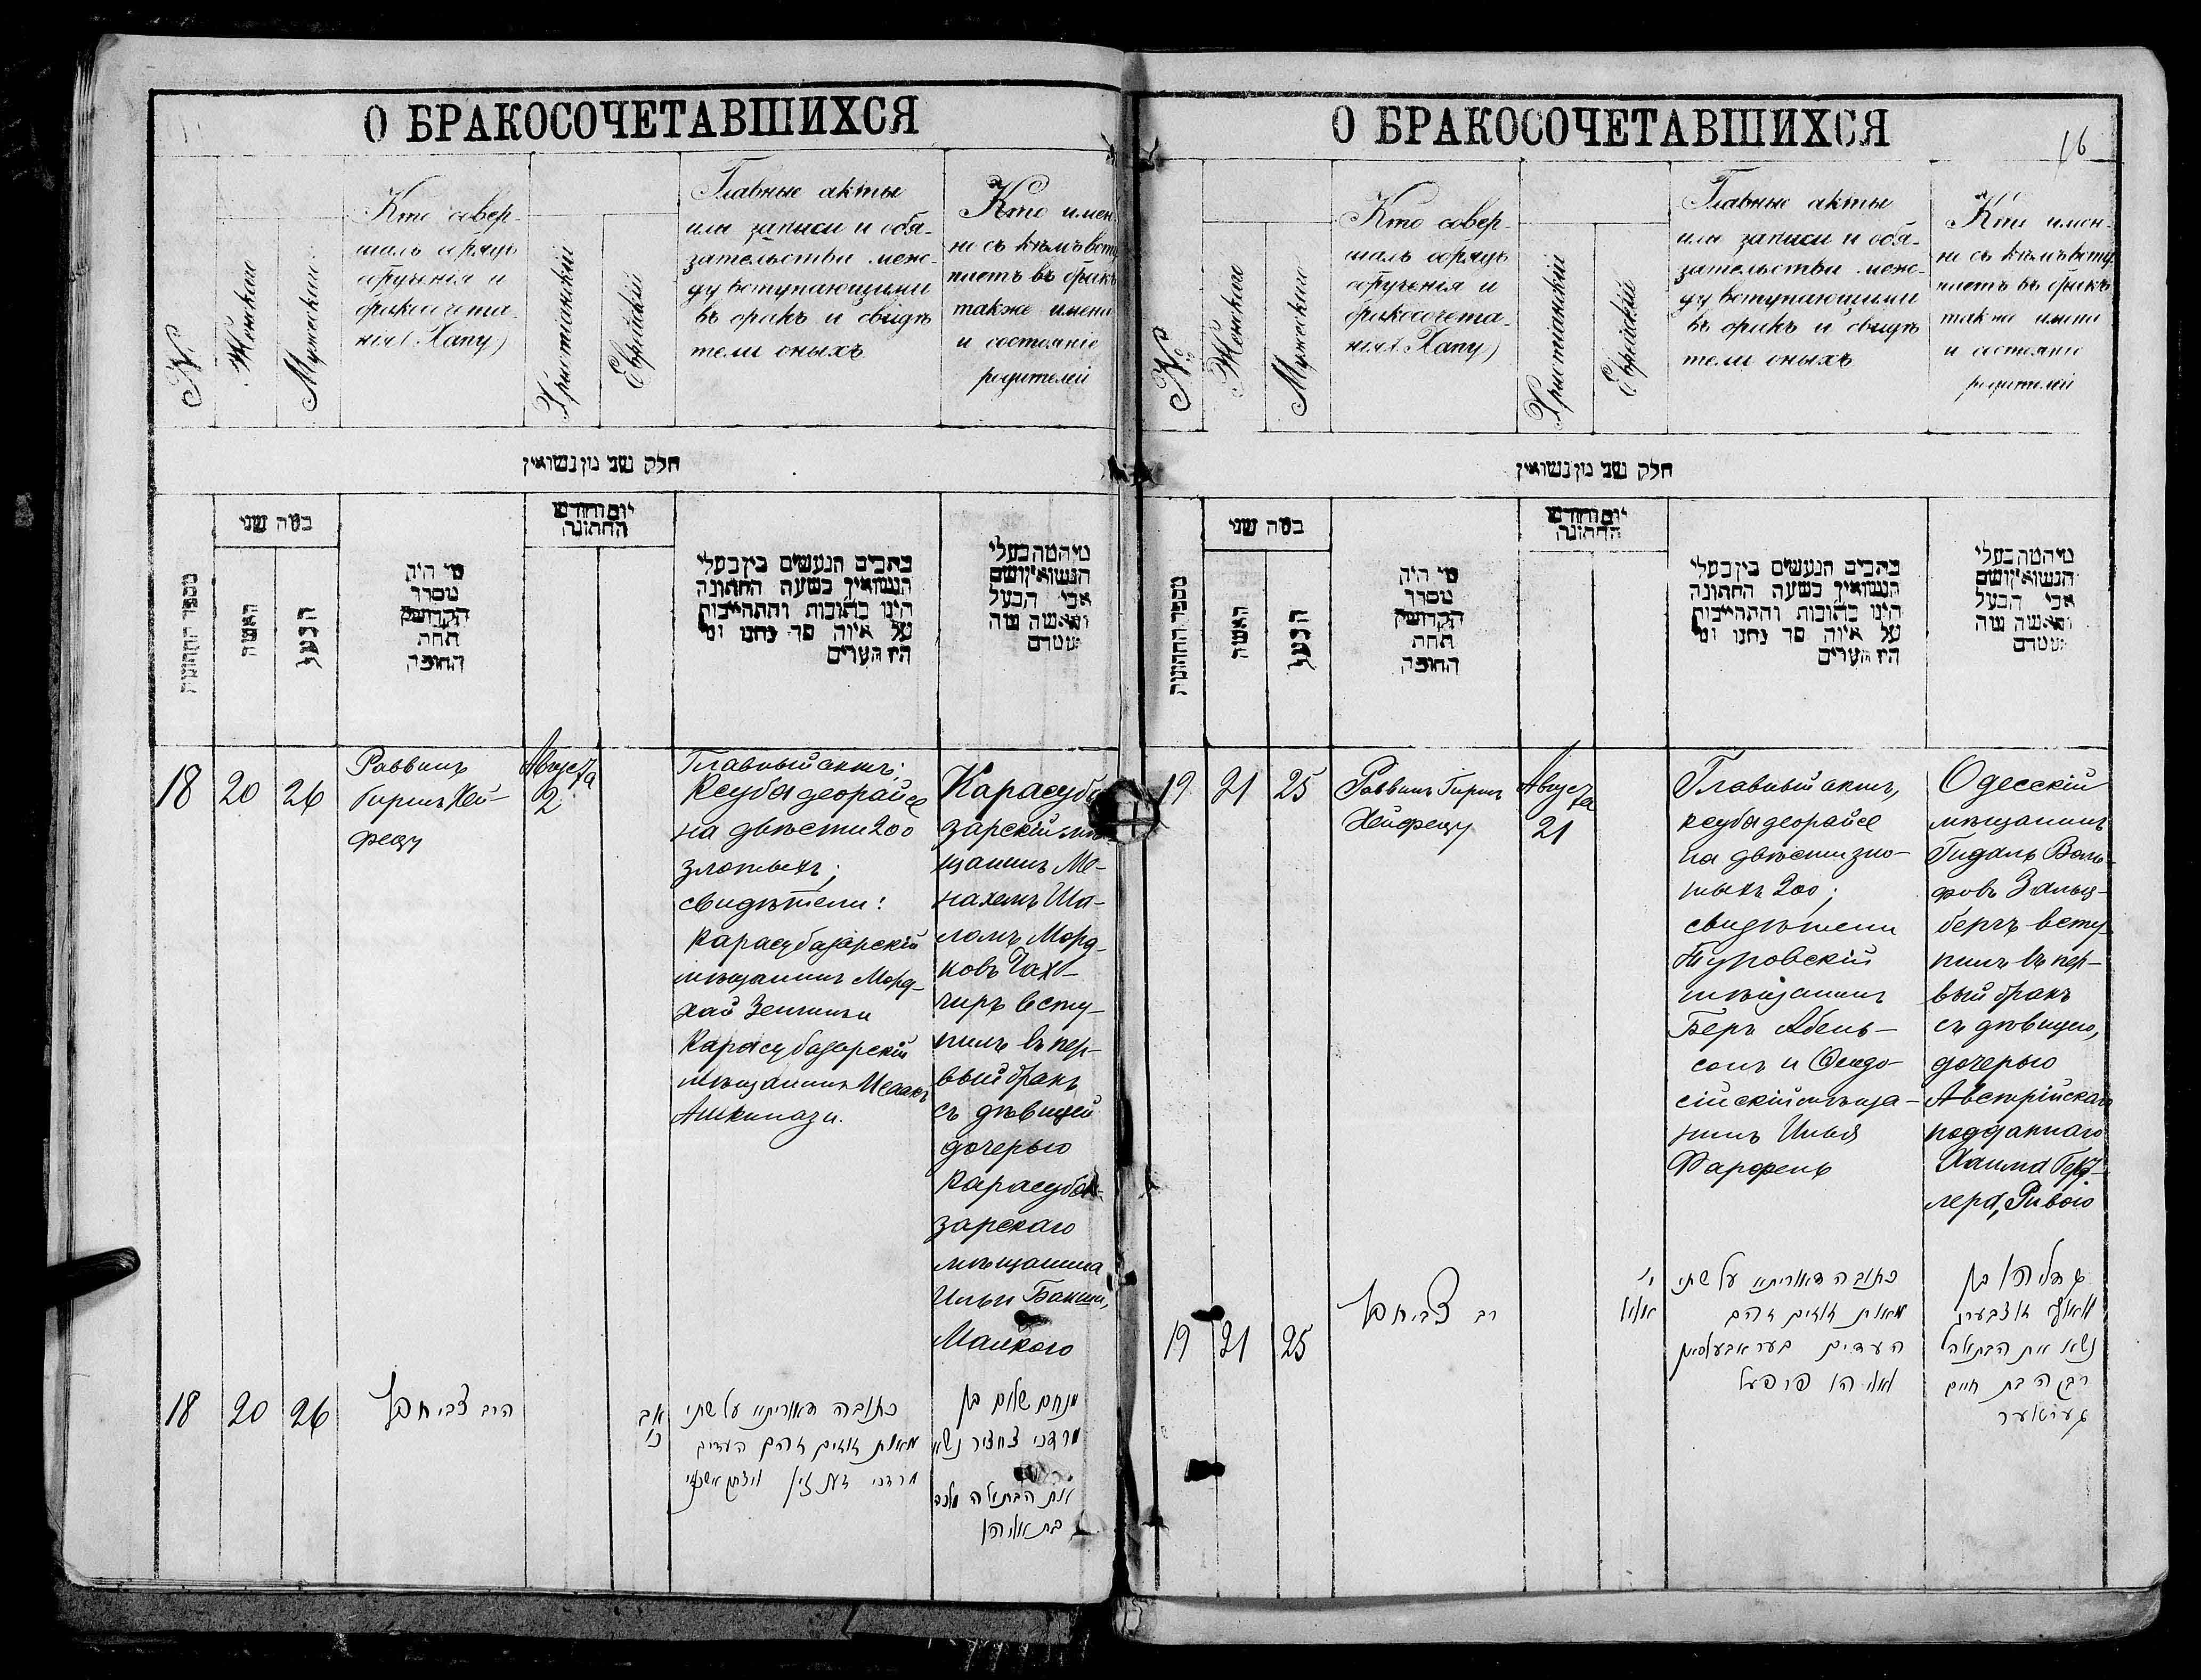 О БРАКОСОЧЕТАВШИХСЯ
№
Женскаго
Мужескаго
Кто совер-
шалъ обрядъ
обрученія и
бракосочета-
нія (Хапу)
Христіанскій
Еврейскій
Главные акты
или записи и обя-
зательства меж-
ду вступающими
въ бракъ и свидѣ
тели оныхъ
Кто имен-
но съ кѣмъ всту
паетъ въ бракъ
также имена
и состояніе
родителей
חלק שני מן נשואין
מספר החתונות
כמה שני
האשה
הבעל
מי היה
מסדר
הקדושין
תחת
החופה
יום וחודש
החתונה
כתבים הנעשים בין בעלי
הנשואין בשעת החתונה
היינו כתובות והתחייבות
על איזה סך נתנו ומי
היו העדים
מיהמה בעלי
הנשואין ושם
אבי הבעל
והאשה ומה
מעמדם
18
20
26
Раввинъ
Гиршъ Хей-
фецъ
Августа
2
Главный актъ;
Ксуба деорайсе
на двѣсти 200
злотыхъ;
свидѣтели:
Карасубазарскій
мѣщанинъ Морд-
хай
Карасубазарскій
мѣщанинъ Исаакъ
Ашкинази.
Карасуба
зарскій мѣ
щанинъ Ме-
нахемъ Ша-
ломъ Морд-
ковъ
чиръ всту-
пилъ въ пер-
вый бракъ
съ дѣвицей
дочерью
Карасуба-
зарскаго
мѣщанина
Ильи Бакши,
Малкою
18
20
26
הרב צבי חפץ
אב
כתובה דאורייתא על שתי
מאות זוזים זהב העדים
מרדכי
יצחק אשכנזי
מנחם שלום בן
מרדכי נשא
את הבתולה מלכה
בת אליהו
О БРАКОСОЧЕТАВШИХСЯ
16
№
Женскаго
Мужескаго
Кто совер-
шалъ обрядъ
обрученія и
бракосочета-
нія (Хапу)
Христіанскій
Еврейскій
Главные акты
или записи и обя-
зательства меж-
ду вступающими
въ бракъ и свидѣ
тели оныхъ
Кто имен-
но съ кѣмъ всту
паетъ въ бракъ
также имена
и состояніе
родителей
חלק שני מן נשואין
מספר החתונות
כמה שני
האשה
הבעל
מי היה
מסדר
הקדושין
תחת
החופה
יום וחודש
החתונה
כתבים הנעשים בין בעלי
הנשואין בשעת החתונה
היינו כתובות והתחייבות
על איזה סך נתנו ומי
היו העדים
מיהמה בעלי
הנשואין ושם
אבי הבעל
והאשה ומה
מעמדם
19
21
25
Раввинъ Гиршъ
Хейфецъ
Августа
21
Главный актъ,
ксуба деорайсе
на двѣсти зло-
тыхъ 200;
свидѣтели
Туровскій
мѣщанинъ
Беръ Абель-
сонъ и Ѳеодо-
сійскій мѣща-
нинъ Илья
Фарфель
Одесскій
мѣщанинъ
Гидаль Воль-
фовъ Зальц-
бергъ всту-
пилъ въ пер-
вый бракъ
съ дѣвицею,
дочерью
Австрійскаго
подданнаго
Хаима Герт-
лера, Ривою
19
21
25
רב צבי חפץ
אלול
כתובה דאורייתא על שתי
מאות זוזים זהב
העדים בער אבעלסאן
אליהו פרפעל
גדליהו בן
וואלף זאצבערג
נשא את הבתולה
רבקה בת חיים
גערטלער